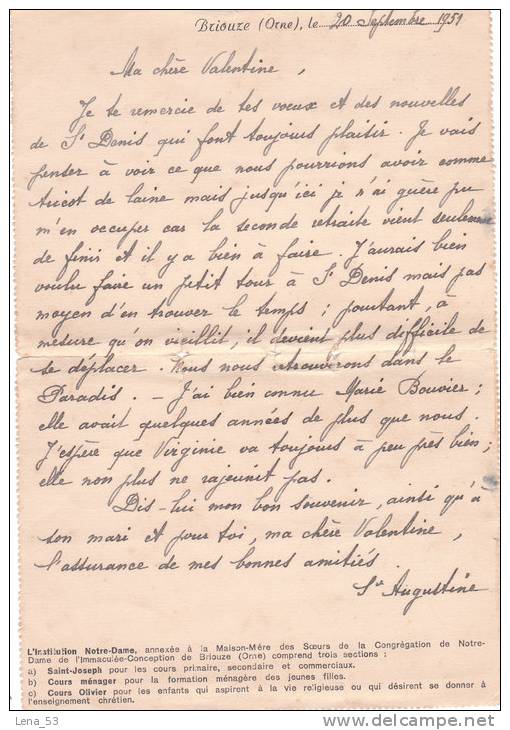 Briouze (Orne), le 20 Septembre 1951
Ma chère Valentine,
Je te remercie de tes voeux et des nouvelles
de St Denis qui font toujours plaisir. Je vais
penser à voir ce que nous pourrions avoir comme
tricot de laine mais jusqu'ici je n'ai guère pu
m'en occuper car la seconde retraite vient seulement
de finir et il y a bien à faire. J'aurais bien
voulu faire un petit tour à St Denis mais pas
moyen d'en trouver le temps ; pourtant, à
mesure qu'on vieillit, il devient plus difficile de
se déplacer. Nous nous retrouverons dans le
Paradis. – J'ai bien connu Marie Bouvier ;
elle avait quelques années de plus que nous.
J'espère que Virginie va toujours à peu près bien ;
elle non plus ne rajeunit pas.
Dis-lui mon bon souvenir, ainsi qu'à
son mari et pour toi, ma chère Valentine,
l'assurance de mes bonnes amitiés.
Sr Augustine
L'Institution Notre-Dame, annexée à la Maison-Mère des Sœurs de la Congrégation de Notre-
Dame de l'Immaculée-Conception de Briouze (Orne) comprend trois sections :
a) Saint-Joseph pour les cours primaire, secondaire et commerciaux.
b) Cours ménager pour la formation ménagère des jeunes filles.
c) Cours Olivier pour les enfants qui aspirent à la vie religieuse ou qui désirent se donner à
l'enseignement chrétien.
Lena_53
www.delcampe.net